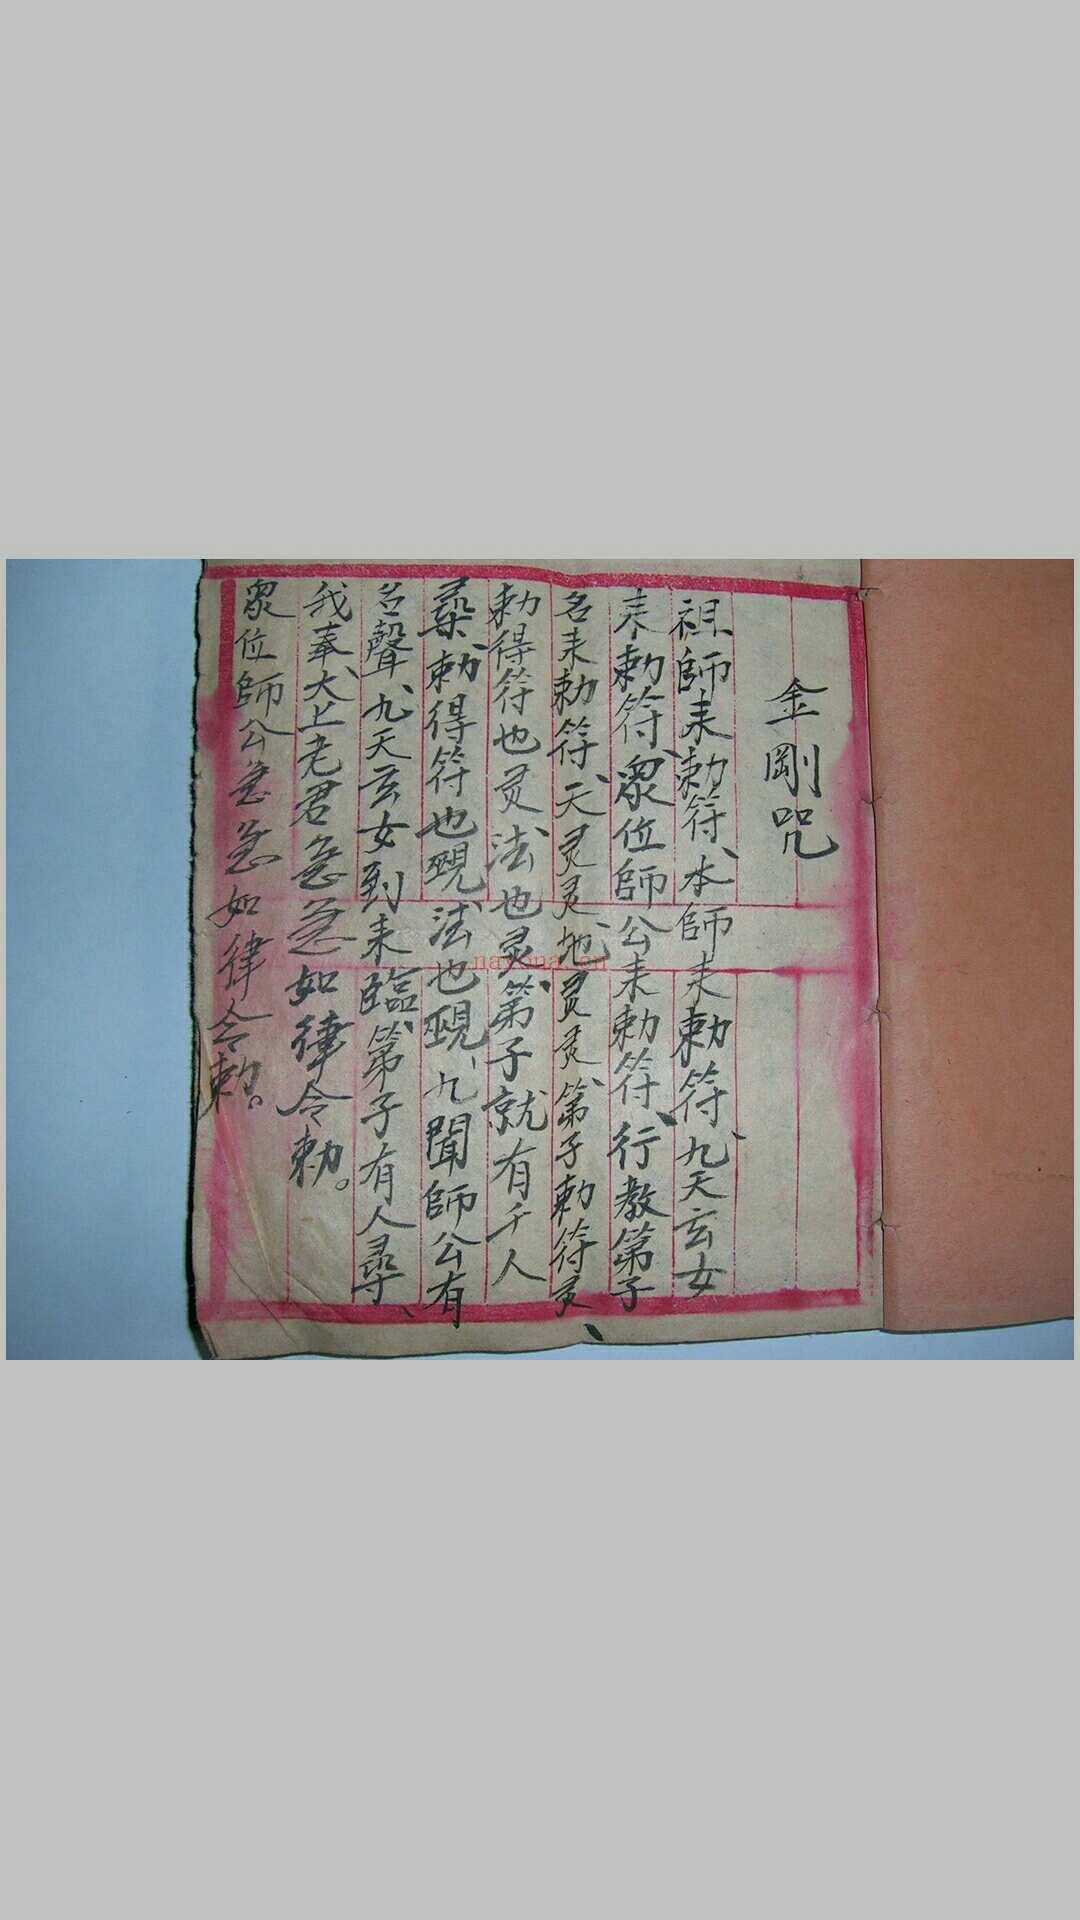 金剛咒
祖師来勅符、本師来勅符、九天玄女
来勅符、眾位師公来勅符、行教第子
名来勅符、天灵灵、地灵灵、第子勅符灵、
勅得符也灵、法也灵、第子就有千人
尋、勅得符也現、法也現、九聞師公有
名聲、九天玄女到来臨、第子有人尋、
我奉、大上老君急急如律令勅。
眾位師公急急如律令勅。
nayona.cn